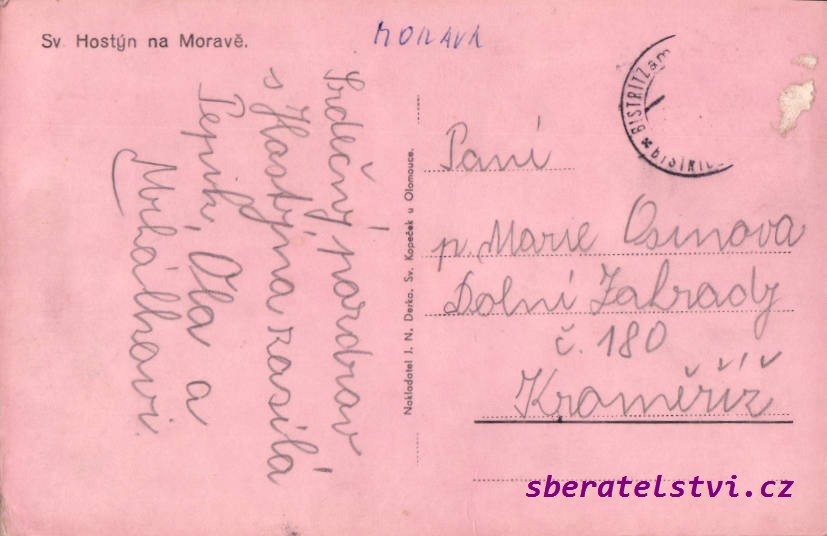 Sv. Hostýn na Moravě.
MORAVA
Srdečný pozdrav
s Hostýna zasílá
Pepík, Ola a
BISTRITZ am
* BISTRIC
Nakladatel J. N. Derka, Sv. Kopeček u Olomouce.
Paní
p. Marie Osinova
Dolní Zahrady
č. 180
Kroměříž
sberatelstvi.cz